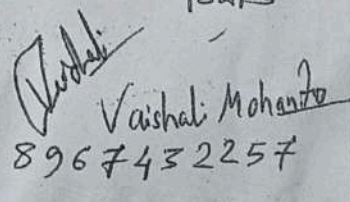 Vaishali
Vaishali Mohanto
8967432257